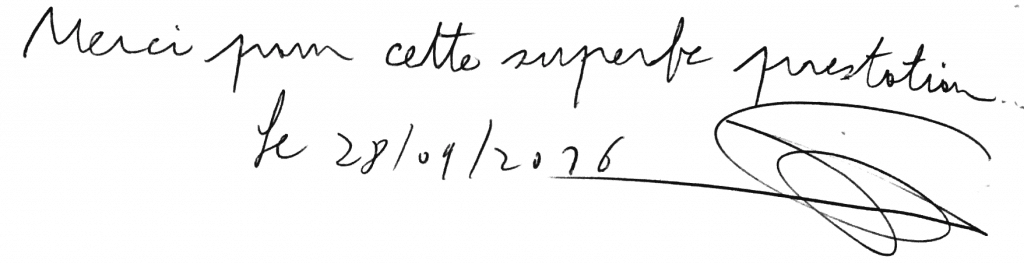 Merci pour cette superbe prestation
Le 28/09/2016